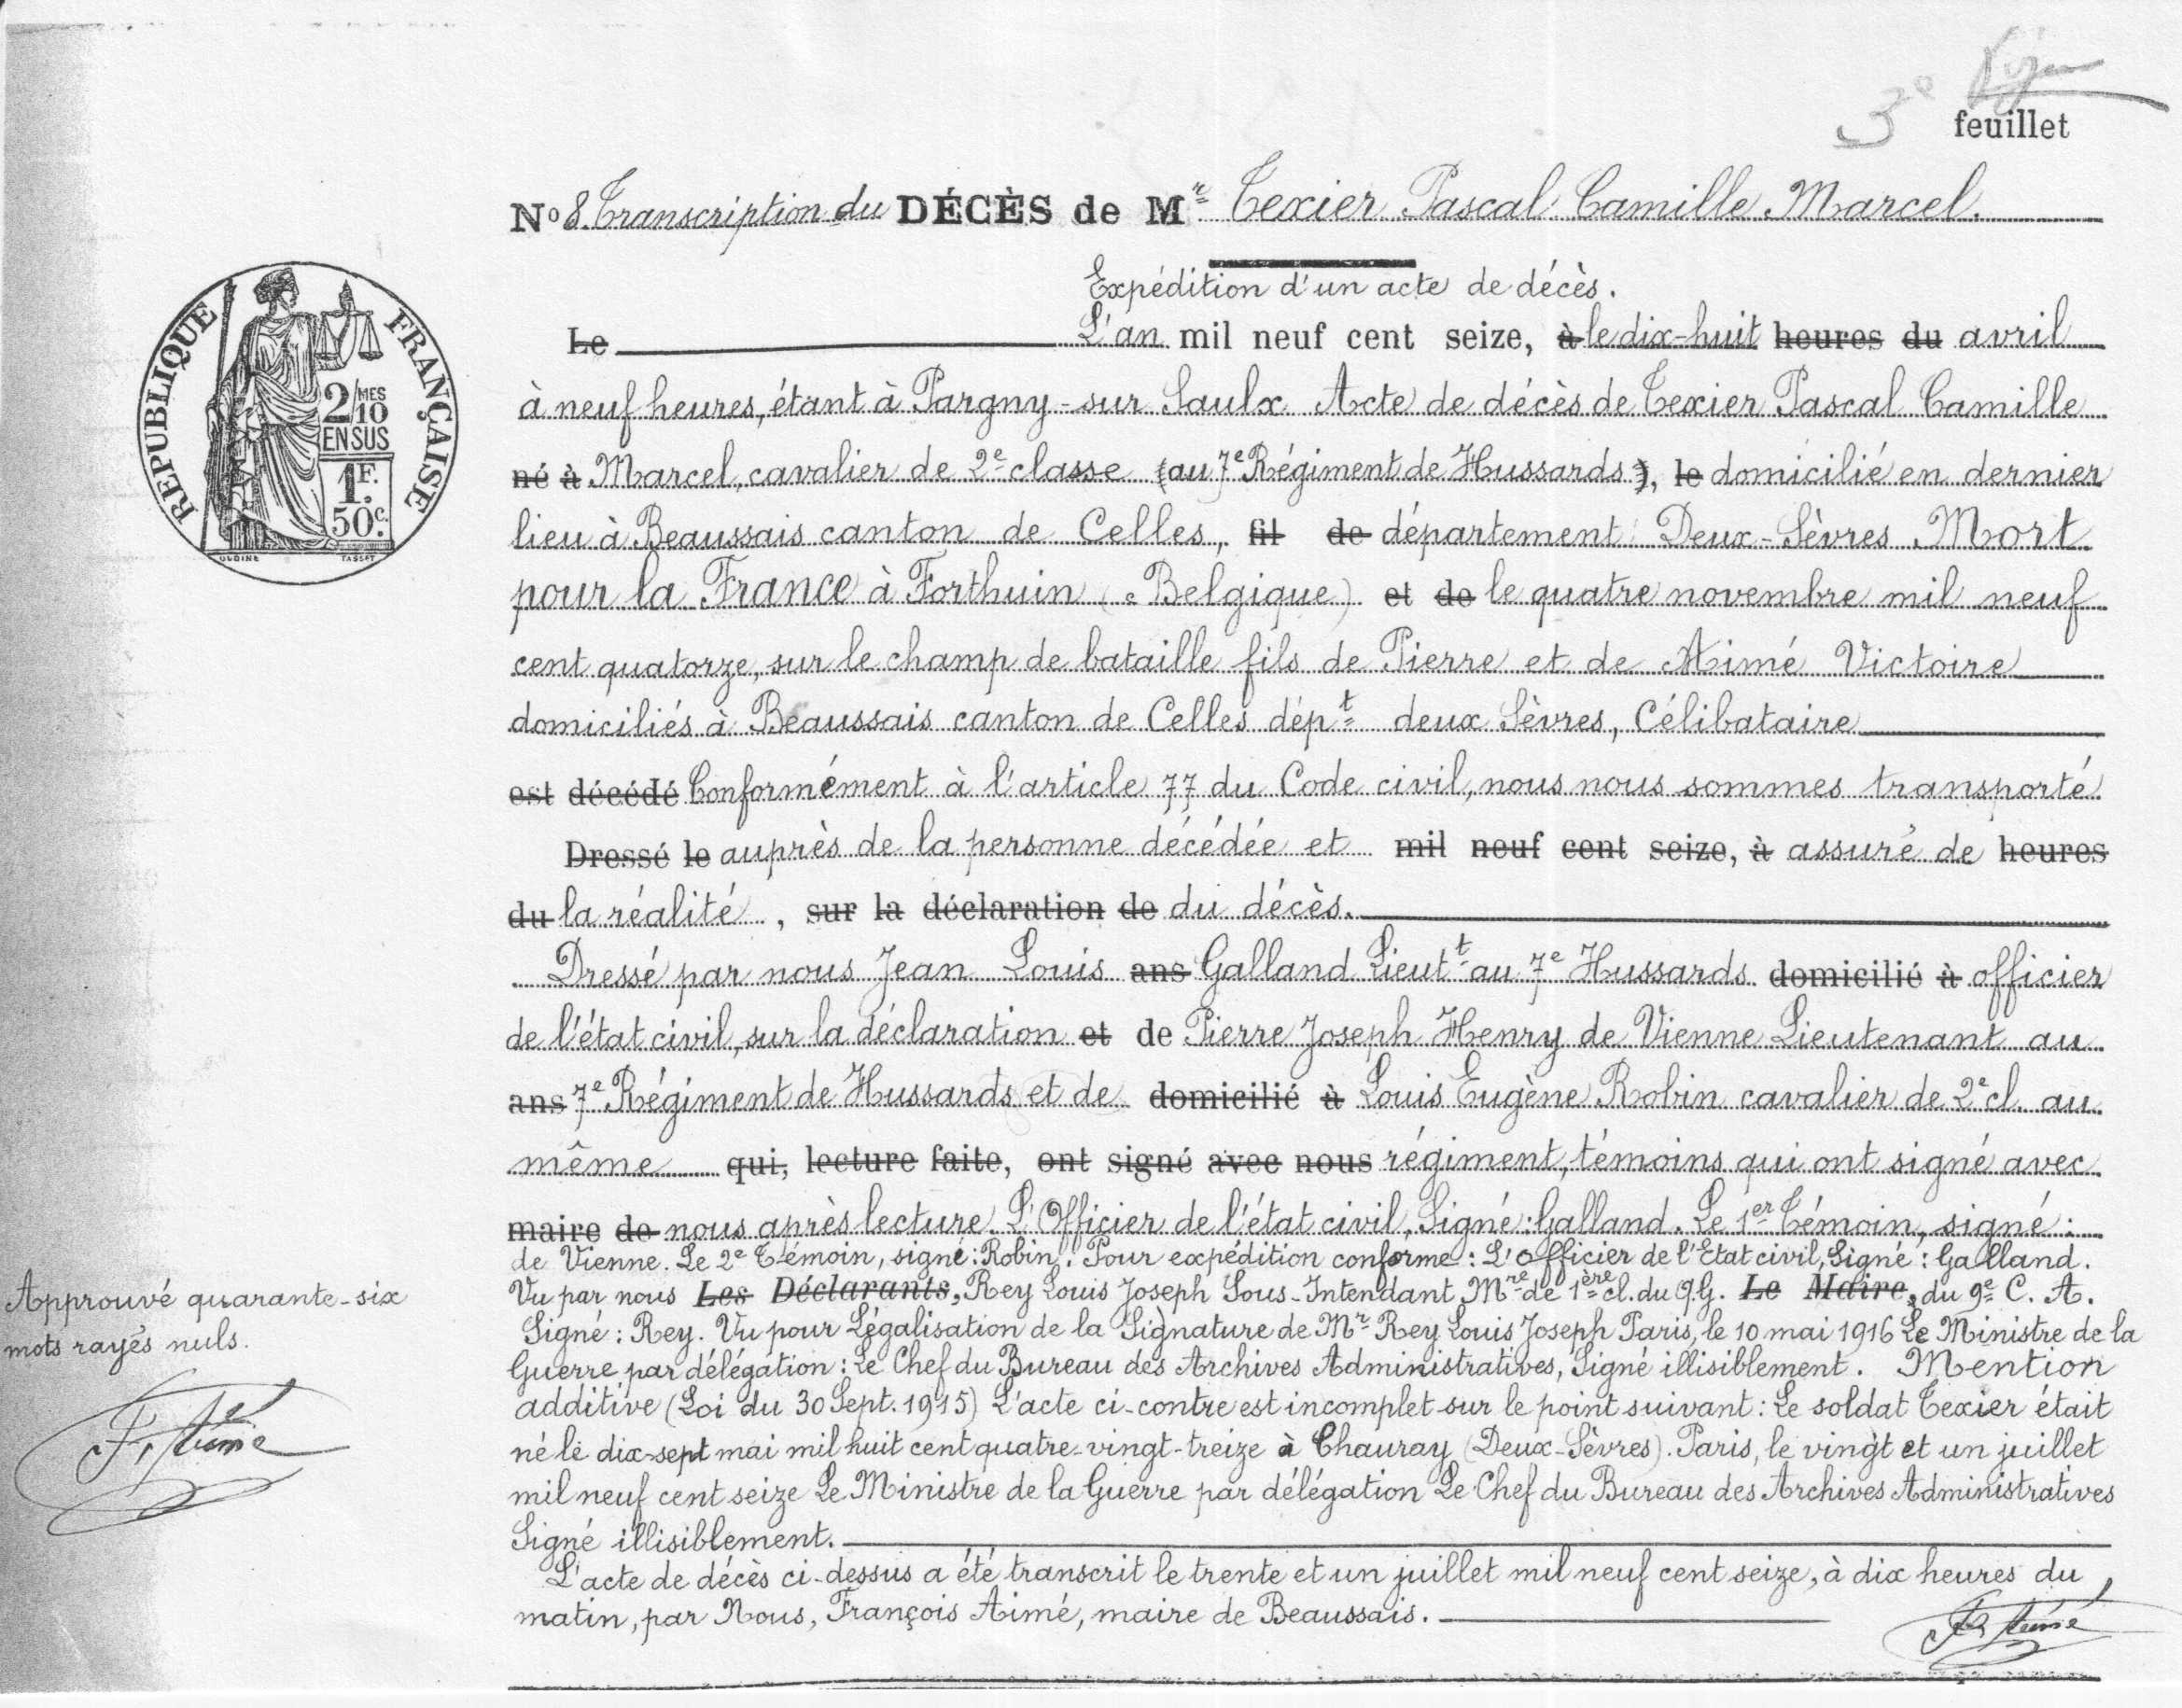 3e
feuillet
No 8. Transcription du DÉCÈS de Mr Texier Pascal Camille Marcel.
Expédition d'un acte de décès.
Le L'an mil neuf cent seize, à le dix-huit heures du avril
à neuf heures, étant à Pargny-sur Saulx Acte de décès de Texier Pascal Camille
né à Marcel, cavalier de 2e classe (au 7e Régiment de Hussards), le domicilié en dernier
lieu à Beaussais canton de Celles, fil de département Deux-Sèvres Mort
pour la France à Forthuin (Belgique) et de le quatre novembre mil neuf
cent quatorze, sur le champ de bataille fils de Pierre et de Aimé Victoire
domiciliés à Beaussais canton de Celles dépt deux Sèvres, Célibataire
est décédé Conformément à l'article 77 du Code civil, nous nous sommes transporté
Dressé le auprès de la personne décédée et mil neuf cent seize, à assuré de heures
du la réalité, sur la déclaration de du décès.
Dressé par nous Jean Louis ans Galland Lieutt au 7e Hussards domicilié à officier
de l'état civil, sur la déclaration et de Pierre Joseph Henry de Vienne Lieutenant au
ans 7e Régiment de Hussards et de domicilié à Louis Eugène Robin cavalier de 2e cl. au
même qui, lecture faite, ont signé avec nous régiment, témoins qui ont signé avec
maire de nous après lecture. L'Officier de l'état civil, Signé: Galland. Le 1er Témoin, signé:
de Vienne. Le 2e Témoin, signé: Robin. Pour expédition conforme: L'Officier de l'Etat civil, Signé: Galland.
Vu par nous Les Déclarants, Rey Louis Joseph Sous-Intendant Mre de 1ère cl. du Q.G. Le Maire, du 9e C. A.
Signé: Rey. Vu pour Légalisation de la Signature de Mr Rey Louis Joseph Paris, le 10 mai 1916 Le Ministre de la
Guerre par délégation: Le Chef du Bureau des Archives Administratives, Signé illisiblement. Mention
additive (Loi du 30 Sept. 1915) L'acte ci-contre est incomplet sur le point suivant: Le soldat Texier était
né le dix-sept mai mil huit cent quatre-vingt-treize à Chauray (Deux-Sèvres). Paris, le vingt et un juillet
mil neuf cent seize Le Ministre de la Guerre par délégation Le Chef du Bureau des Archives Administratives
Signé illisiblement.
L'acte de décès ci-dessus a été transcrit le trente et un juillet mil neuf cent seize, à dix heures du
matin, par Nous, François Aimé, maire de Beaussais.
Fs Aimé
RÉPUBLIQUE FRANÇAISE
2/10 MES
EN SUS
1F.
50c.
OUDINÉ TASSET
Approuvé quarante-six
mots rayés nuls.
Fs Aimé